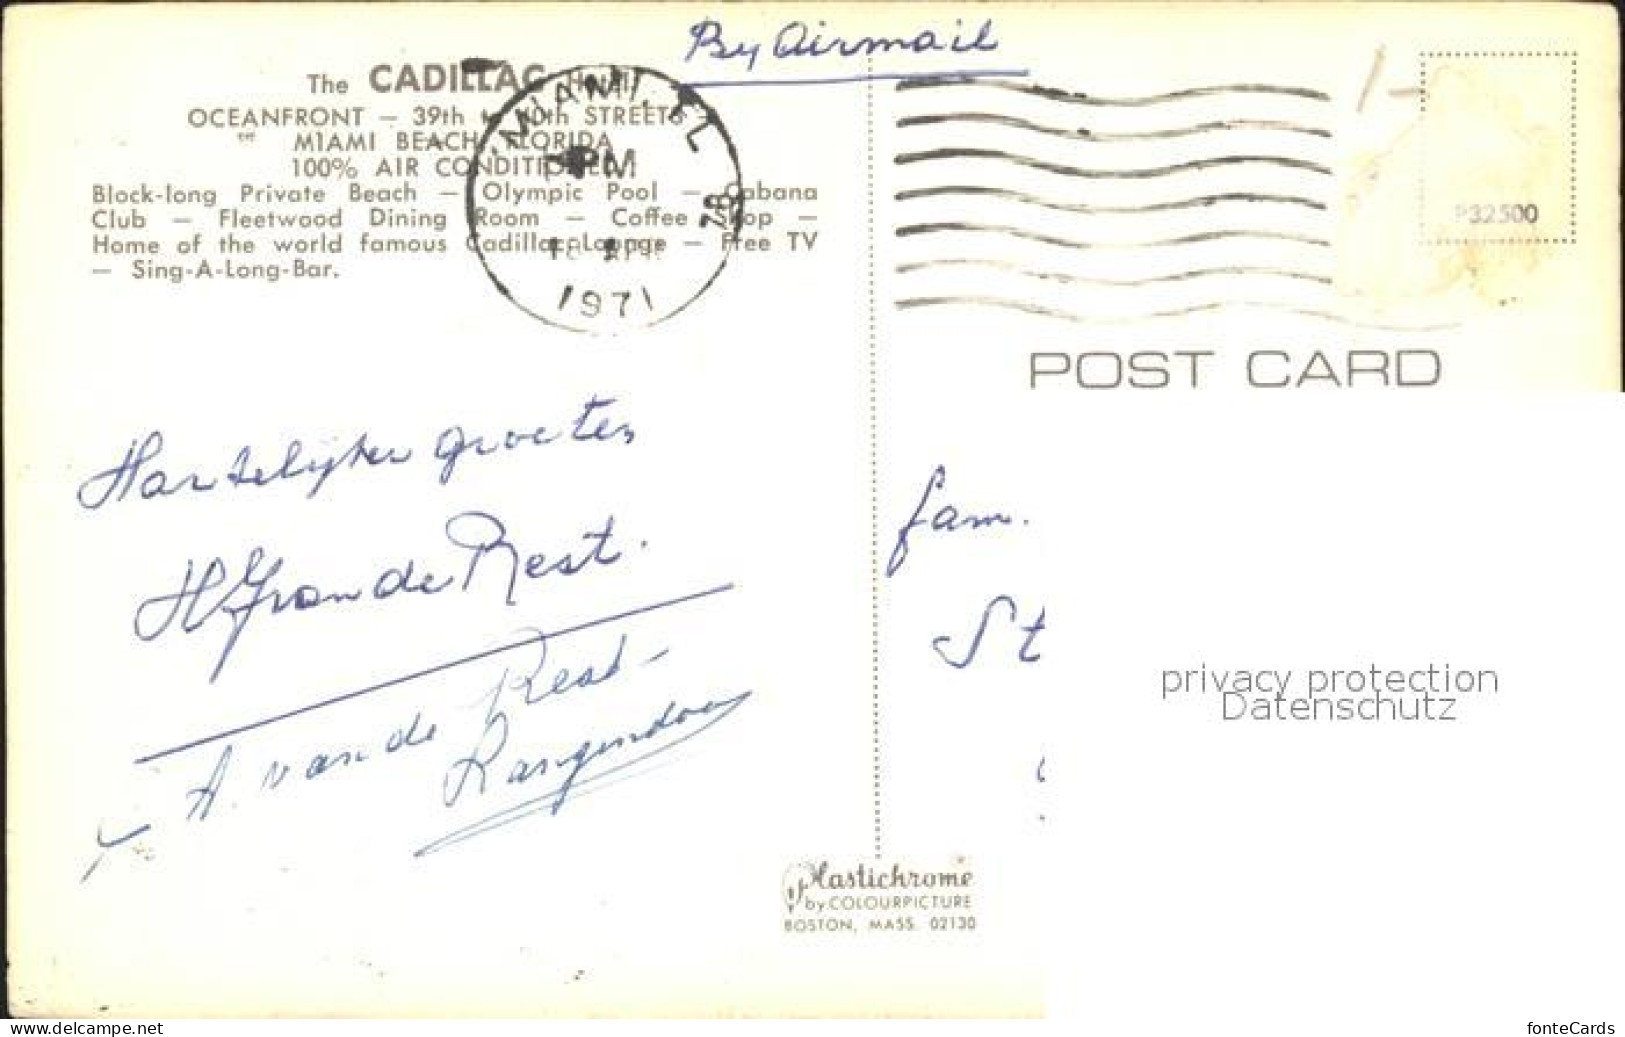 By Airmail
The CADILLAC Hotel
OCEANFRONT — 39th to 40th STREETS
MIAMI BEACH, FLORIDA
100% AIR CONDITIONED
Block-long Private Beach — Olympic Pool — Cabana
Club — Fleetwood Dining Room — Coffee Shop —
Home of the world famous Cadillac Lounge — Free TV
— Sing-A-Long-Bar.
MIAMI, FL
PM
1971
P32500
POST CARD
Hartelijke groeten
H van de Rest.
A. van de Rest-
fam.
St
privacy protection
Datenschutz
Plastichrome
by COLOURPICTURE
BOSTON, MASS. 02130
www.delcampe.net
fonteCards